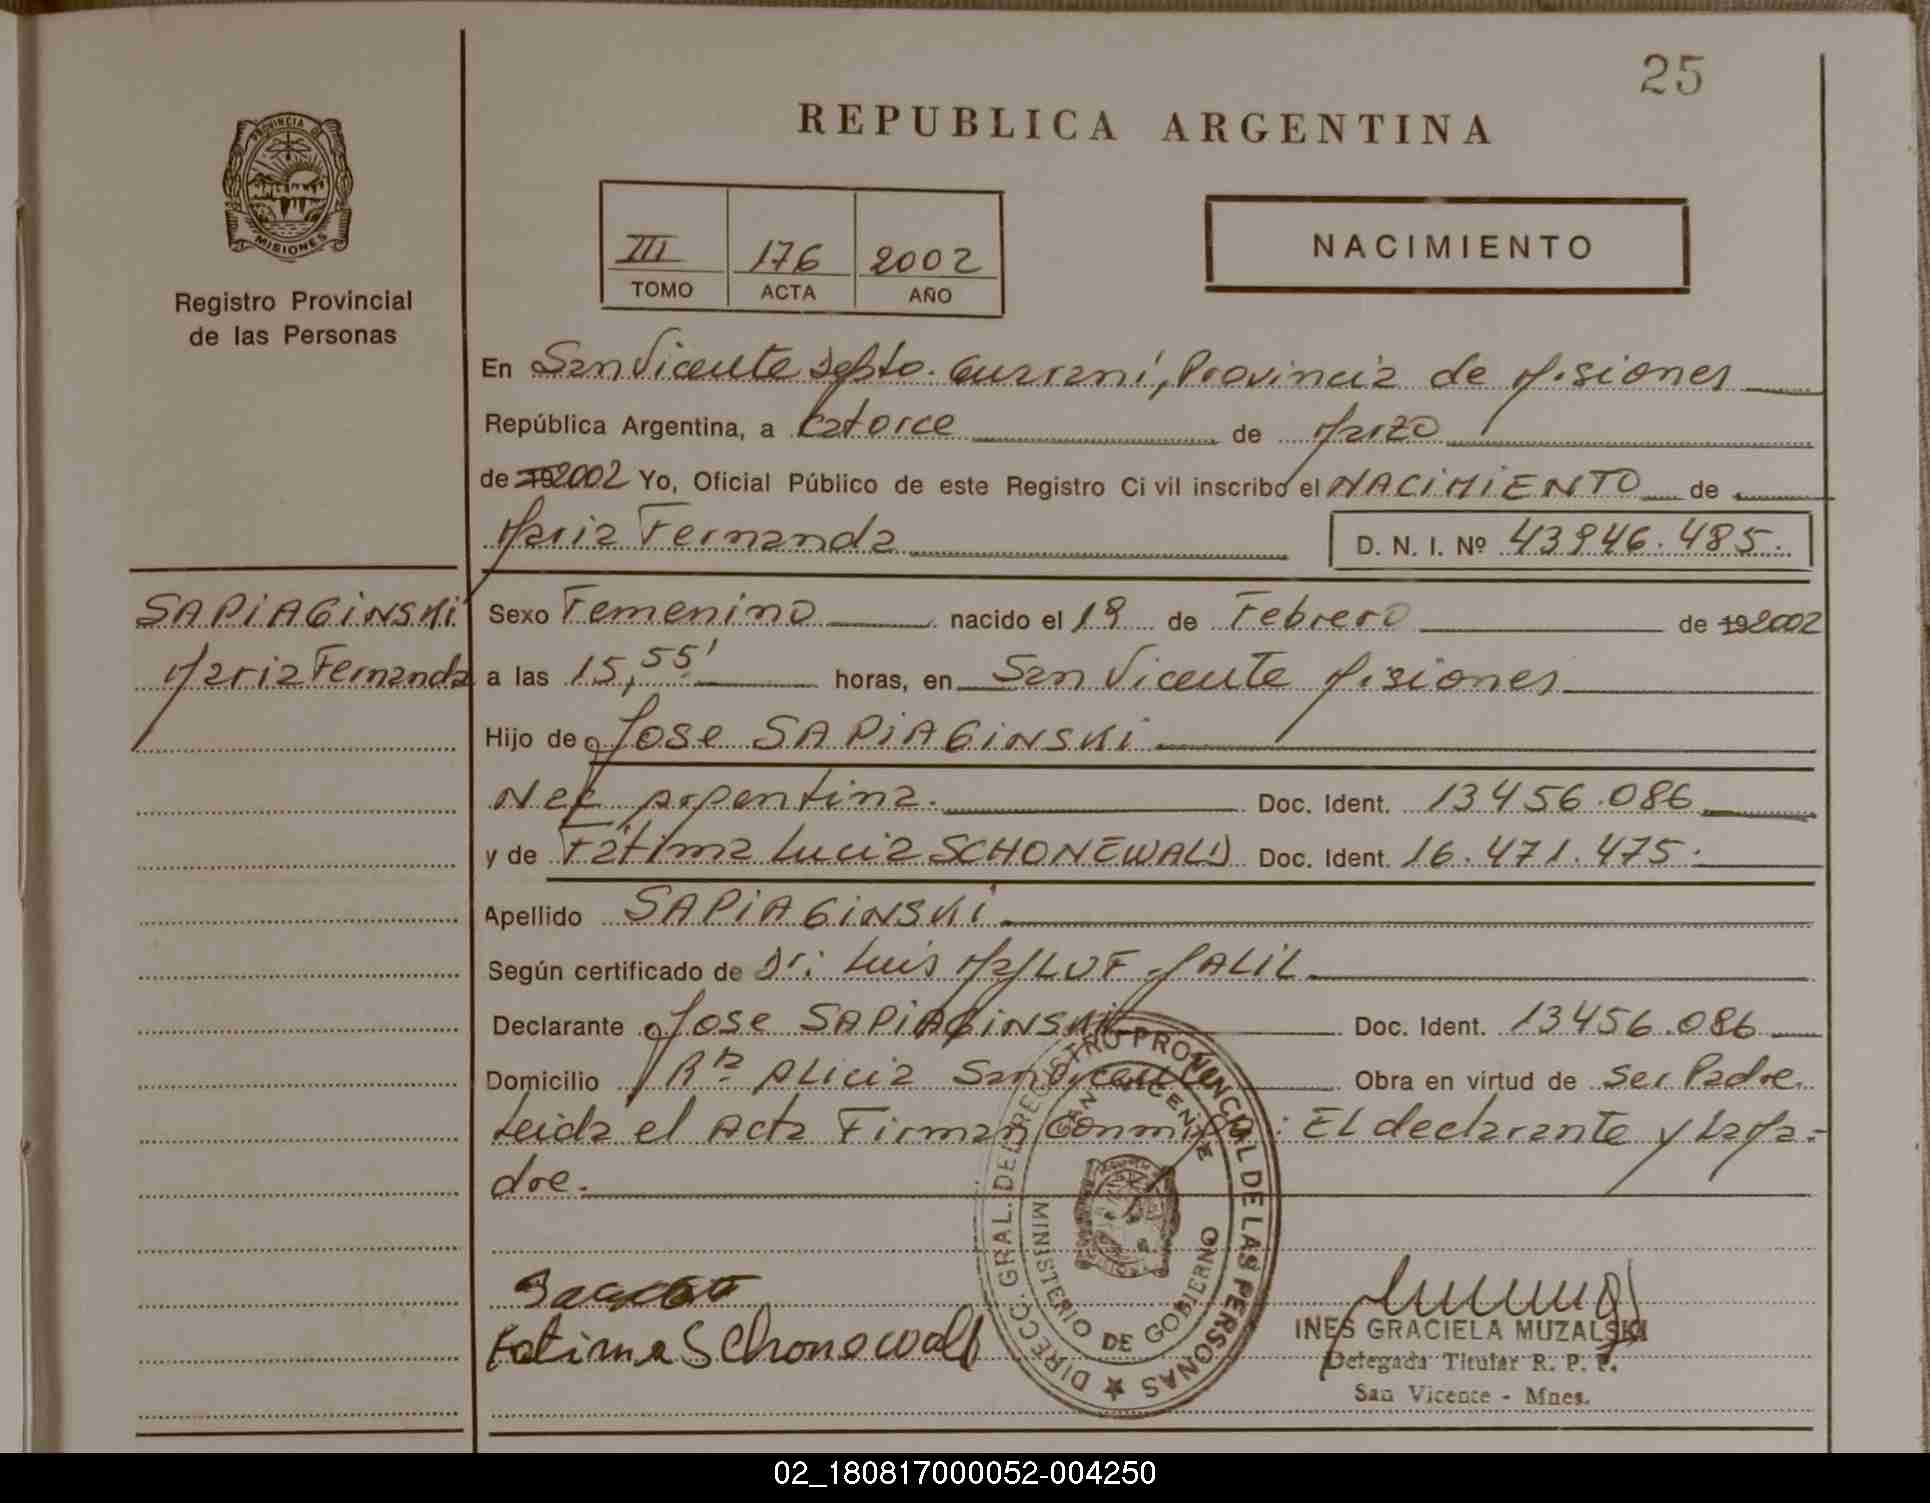 25
REPUBLICA ARGENTINA
PROVINCIA DE
MISIONES
Registro Provincial
de las Personas
III 176 2002
TOMO ACTA AÑO
NACIMIENTO
En San Vicente Depto. Guarani, Provincia de Misiones
República Argentina, a Catorce de Marzo
de 19 2002 Yo, Oficial Público de este Registro Civil inscribo el NACIMIENTO de
Maria Fernanda D. N. I. Nº 43946.485.
SAPIAGINSKI
Maria Fernanda
Sexo Femenino nacido el 19 de Febrero de 19 2002
a las 15,55' horas, en San Vicente Misiones
Hijo de Jose SAPIAGINSKI
Nac. Argentina. Doc. Ident. 13456.086
y de Fátima Lucia SCHONEWALD Doc. Ident. 16.471.475.
Apellido SAPIAGINSKI
Según certificado de Dr. Luis MALUF JALIL
Declarante Jose SAPIAGINSKI Doc. Ident. 13456.086
Domicilio Bº Alicia San Vicente Obra en virtud de Ser Padre.
Leida el Acta Firman Conmigo: El declarante y La Ma-
dre.
DIRECC. GRAL. DE REGISTRO PROVINCIAL DE LAS PERSONAS
SAN VICENTE
MINISTERIO DE GOBIERNO
Fatima Schonewald
INES GRACIELA MUZALSKI
Delegada Titular R. P. P.
San Vicente - Mnes.
02_180817000052-004250